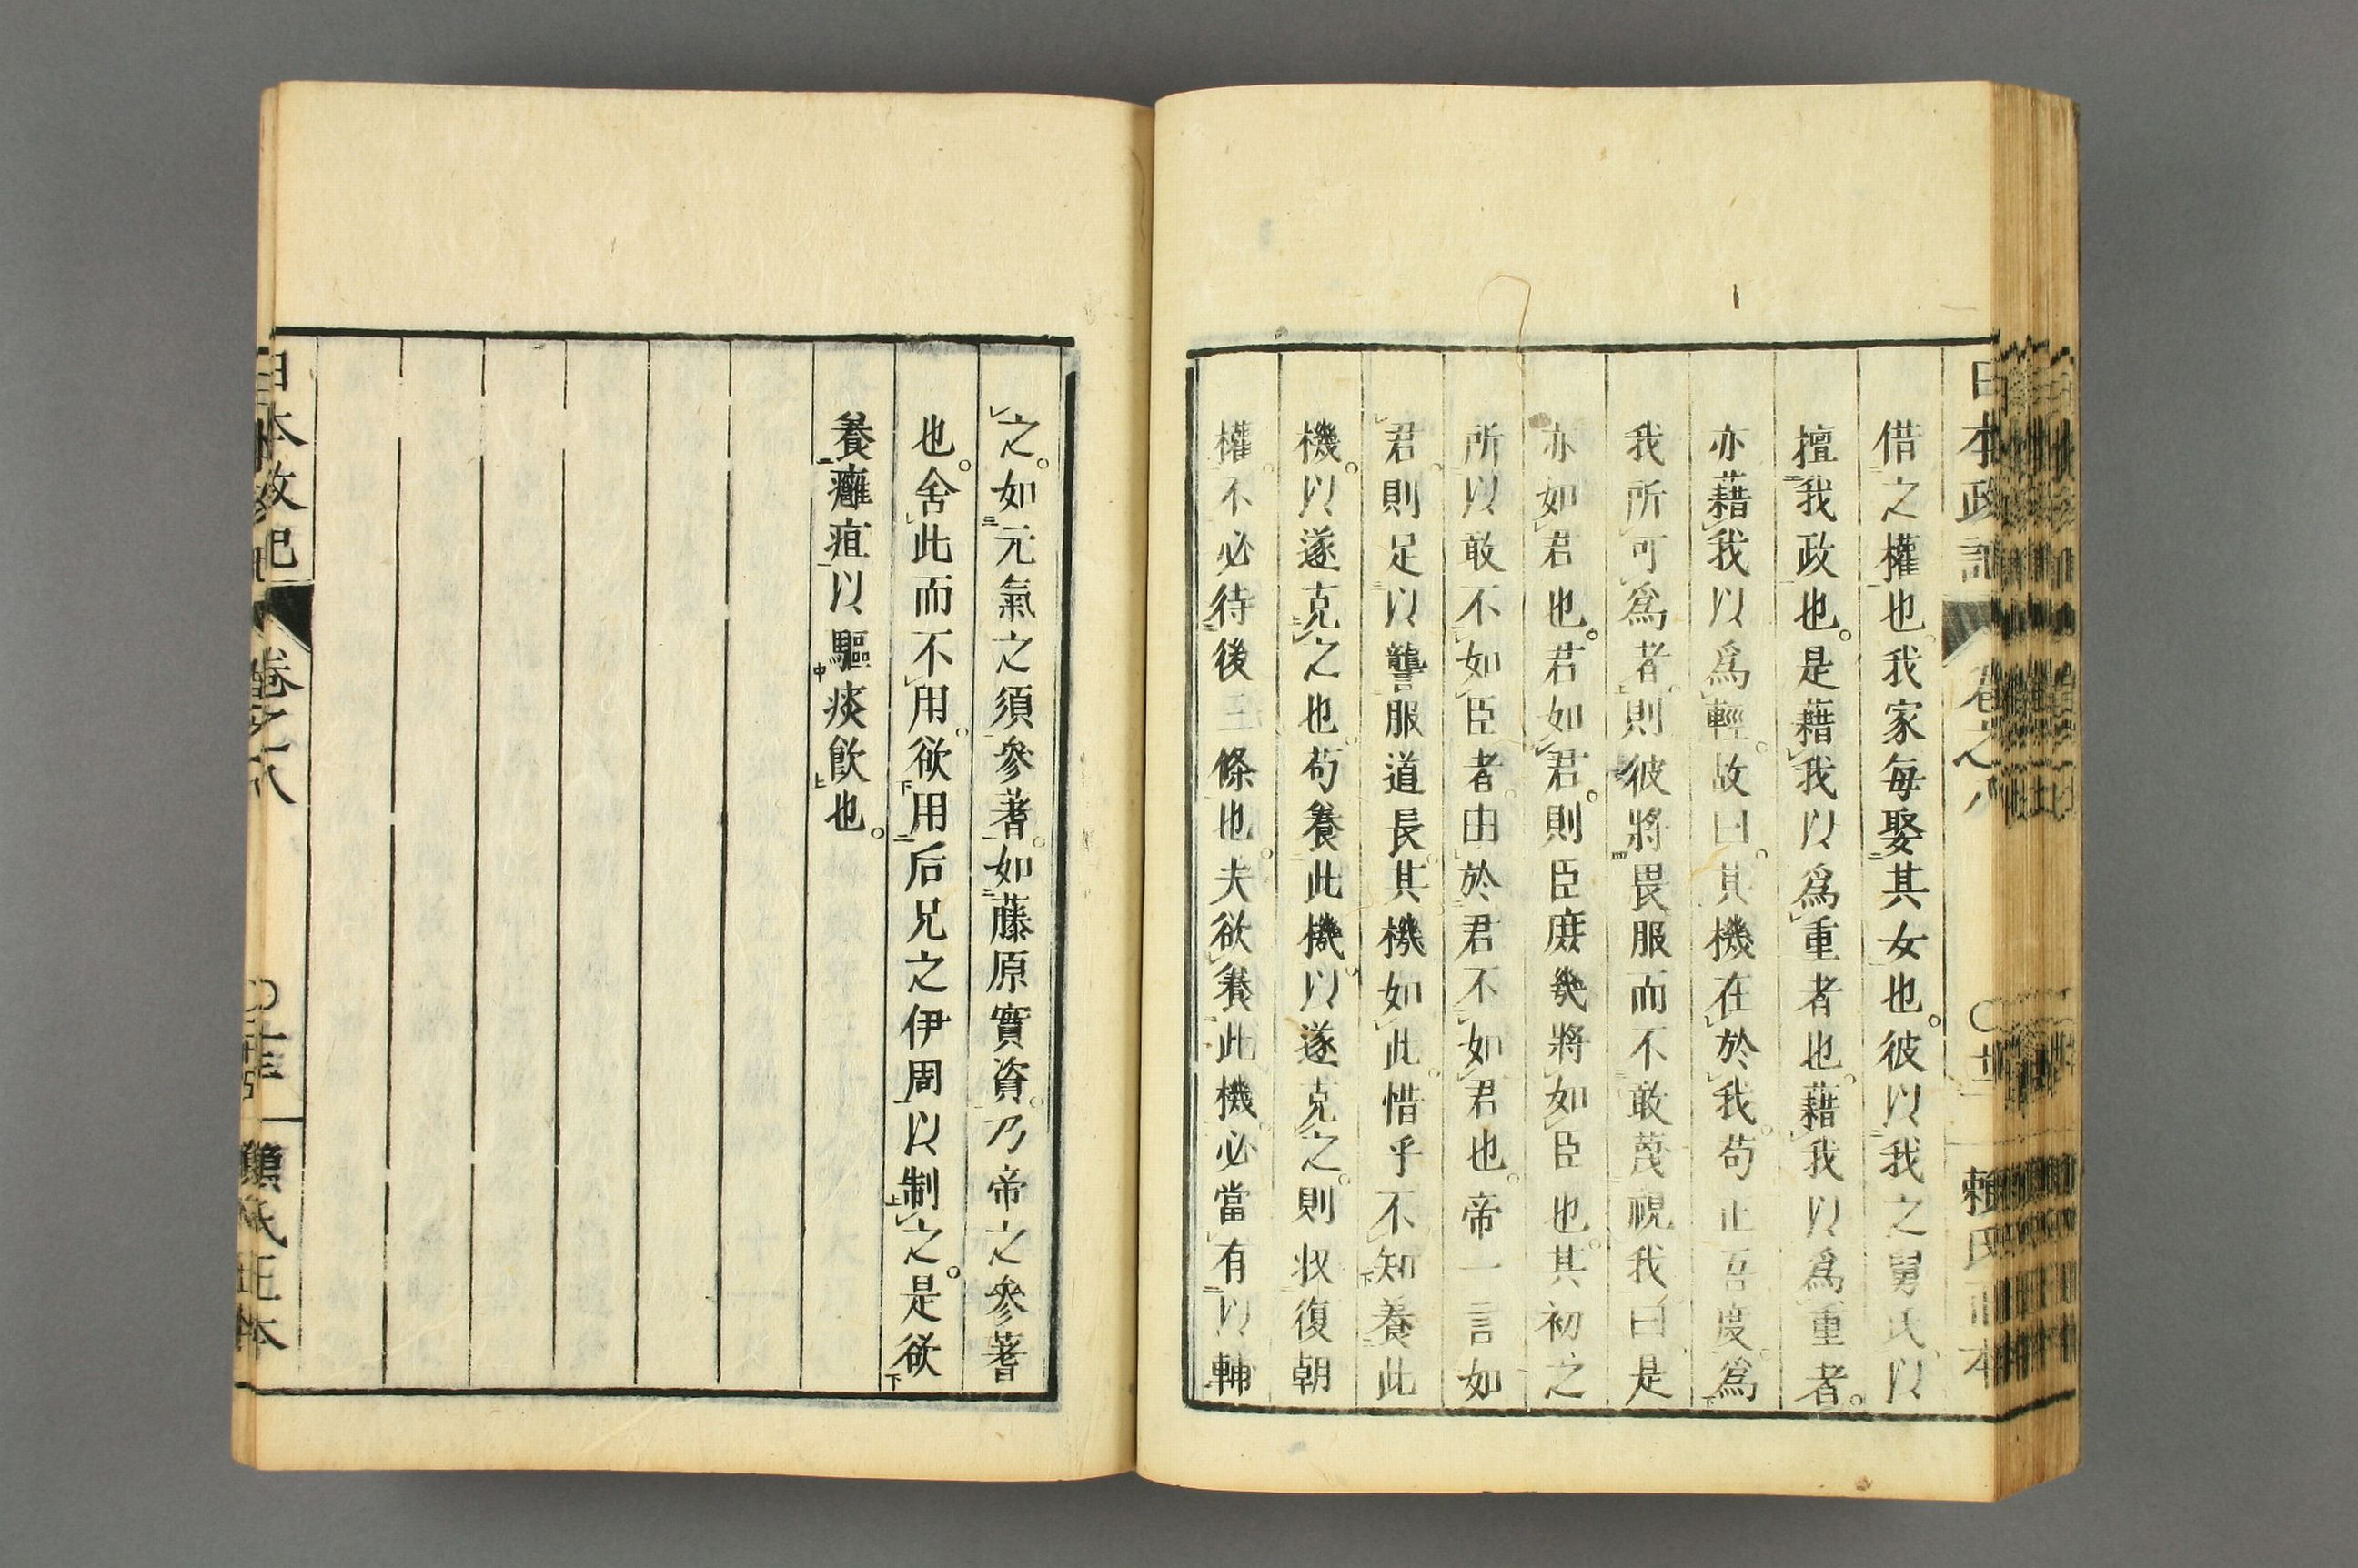 日本政記 卷之八 賴氏正本
借之權也我家每娶其女也。彼以我之舅氏以
擅我政也。是藉我以爲重者也。藉我以爲重者。
亦藉我以爲輕。故曰。其機在於我。苟止吾度。爲
我所可爲者。則彼將畏服而不敢蔑視我曰是
亦如君也。君如君。則臣庶幾將如臣也。其初之
所以敢不如臣者。由於君不如君也。帝一言如
君。則足以讋服道長。其機如此。惜乎不知養此
機。以遂克之也。苟養此機。以遂克之。則收復朝
權。不必待後三條也。夫欲養此機。必當有以輔
之。如元氣之須參蓍。如藤原實資。乃帝之參蓍
也。舍此而不用。欲用后兄之伊周以制之。是欲
養癰疽以驅痰飮也。
日本政記 卷之八